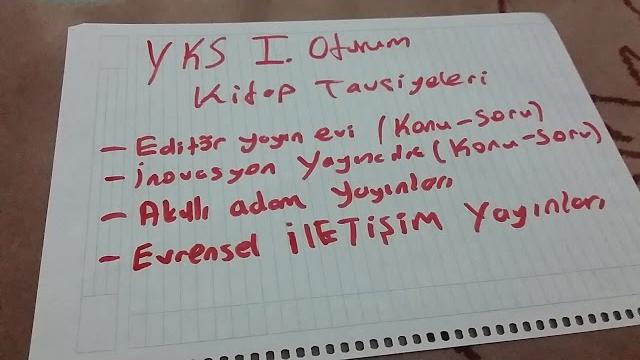 YKS I. Oturum
Kitap Tavsiyeleri
- Editör yayın evi (Konu-Soru)
- İnovasyon Yayıncılık (Konu-Soru)
- Akıllı adam yayınları
- Evrensel İLETİŞİM Yayınları